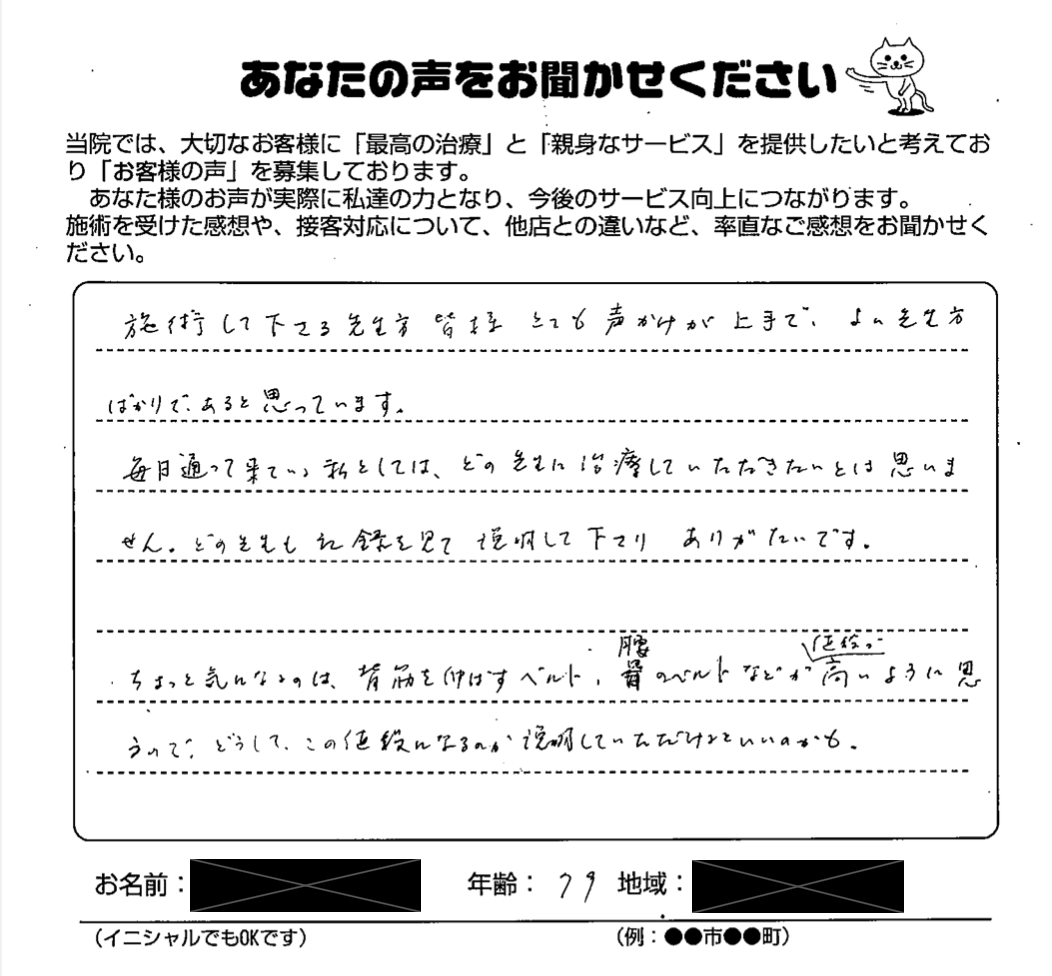 あなたの声をお聞かせください
当院では、大切なお客様に「最高の治療」と「親身なサービス」を提供したいと考えてお
り「お客様の声」を募集しております。
あなた様のお声が実際に私達の力となり、今後のサービス向上につながります。
施術を受けた感想や、接客対応について、他店との違いなど、率直なご感想をお聞かせく
ださい。
施術して下さる先生方 皆様 とても声かけが上手で、よい先生方
ばかりであると思っています。
毎日通って来ている私としては、どの先生に治療していただきたいとは思いま
せん。どの先生も記録を見て説明して下さり ありがたいです。
腰 値段が
ちょっと気になるのは、背筋を伸ばすベルト、のベルトなどが高いように思
うので、どうして、この値段になるのか説明していただけるといいのかも。
お名前： 年齢：79 地域：
（イニシャルでもOKです） （例：●●市●●町）